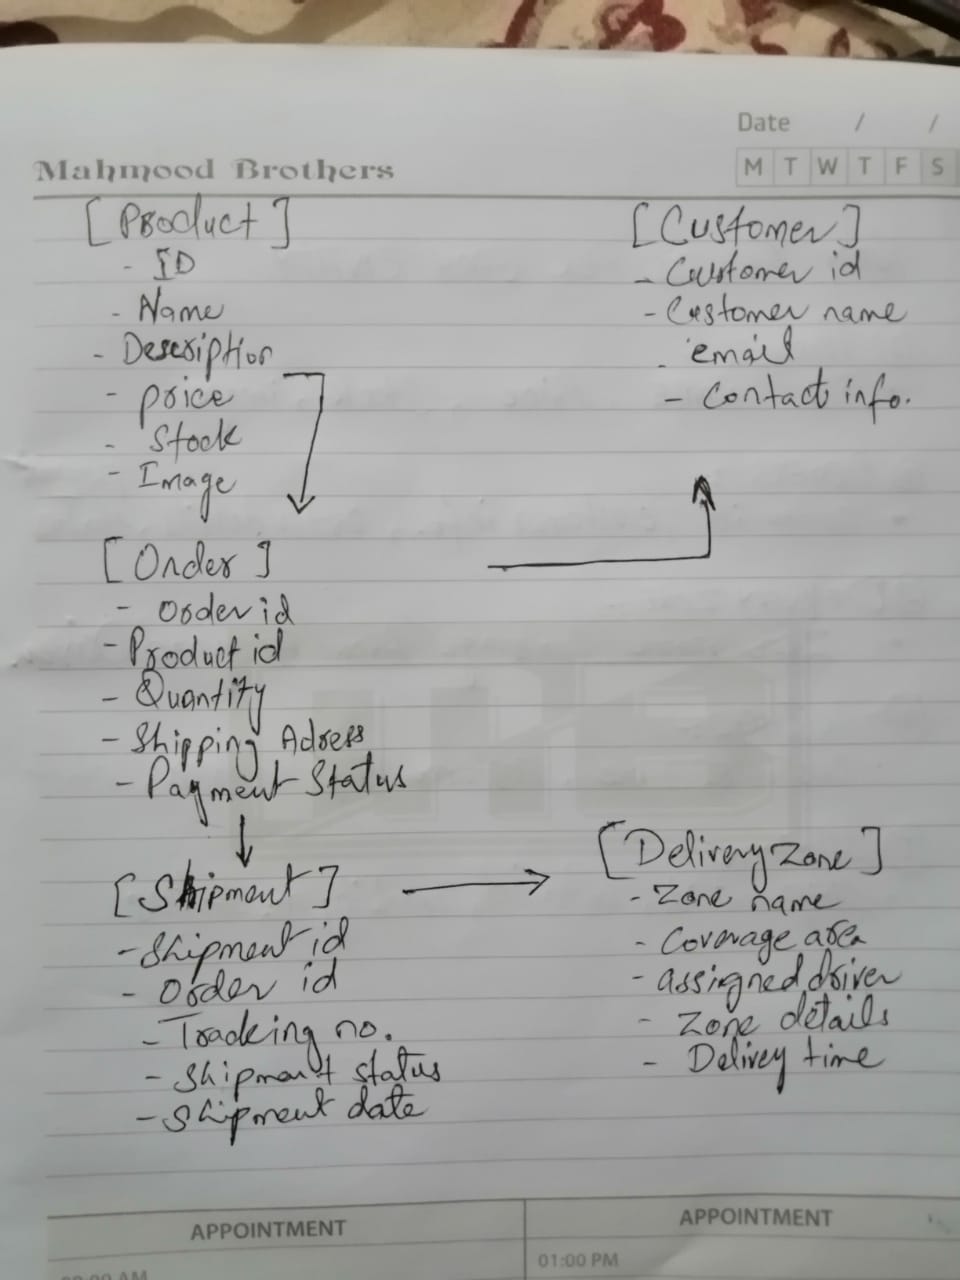 Date / /
Mahmood Brothers
M T W T F S
[Product]
- ID
- Name
- Description
- price
- Stock
- Image
[Customer]
- Customer id
- Customer name
- email
- Contact info.
[Order]
- Order id
- Product id
- Quantity
- Shipping Adress
- Payment Status
[Shipment]
- Shipment id
- Order id
- Tracking no.
- Shipment status
- Shipment date
[Delivery Zone]
- Zone name
- Coverage area
- assigned driver
- Zone details
- Delivey time
APPOINTMENT
APPOINTMENT
01:00 PM